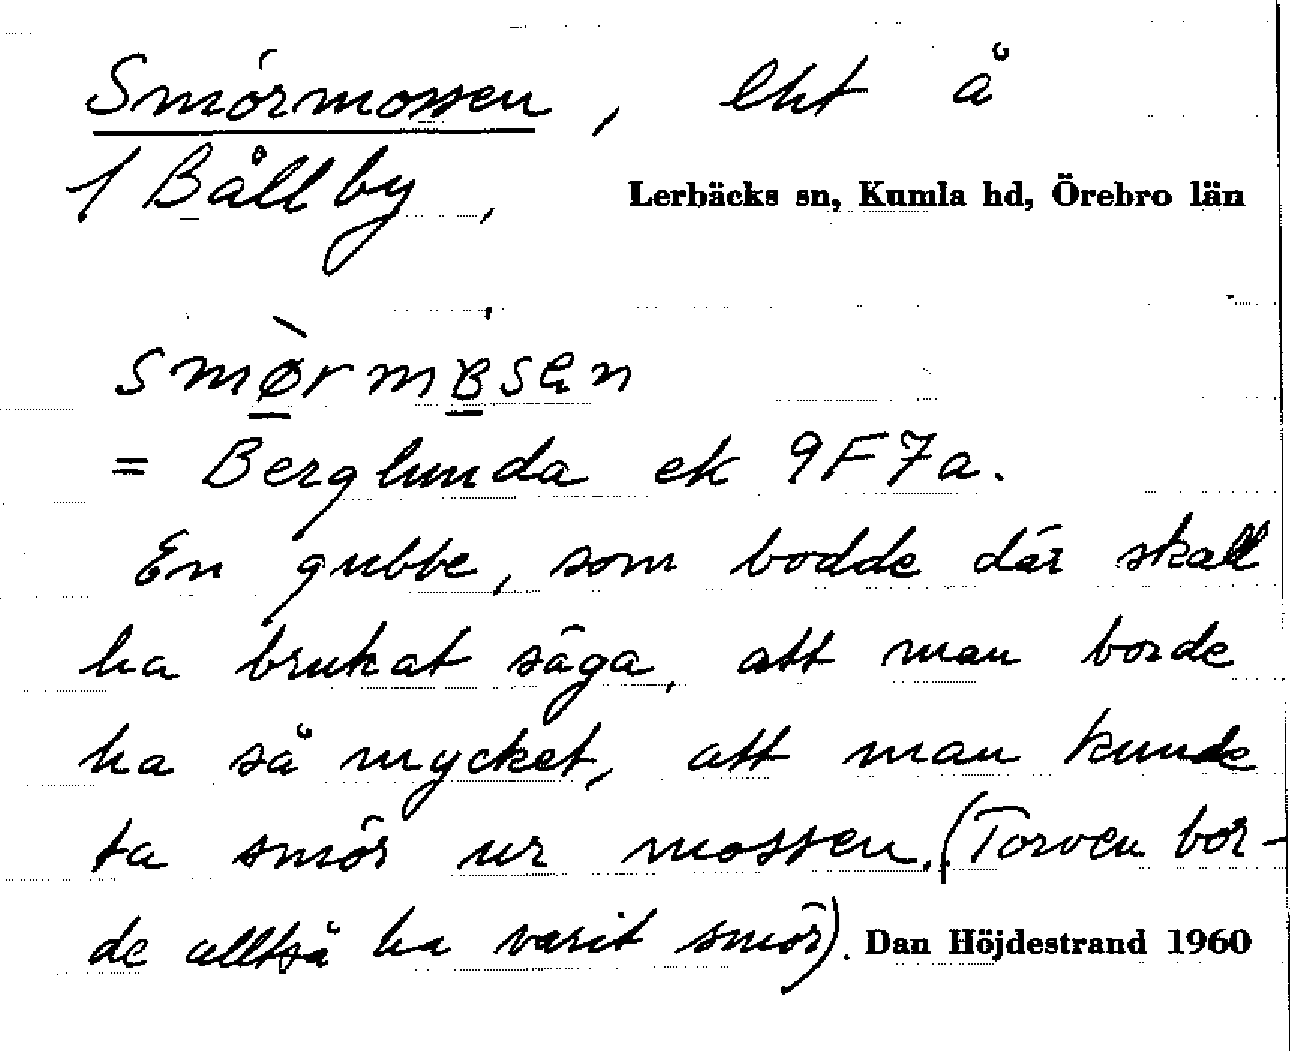 Smörmossen, lht å
1 Bållby, Lerbäcks sn, Kumla hd, Örebro län
= Berglunda ek 9F7a.
En gubbe, som bodde där skall
ha brukat säga, att man borde
ha så mycket, att man kunde
ta smör ur mossen. (Torven bor-
de alltså ha varit smör). Dan Höjdestrand 1960